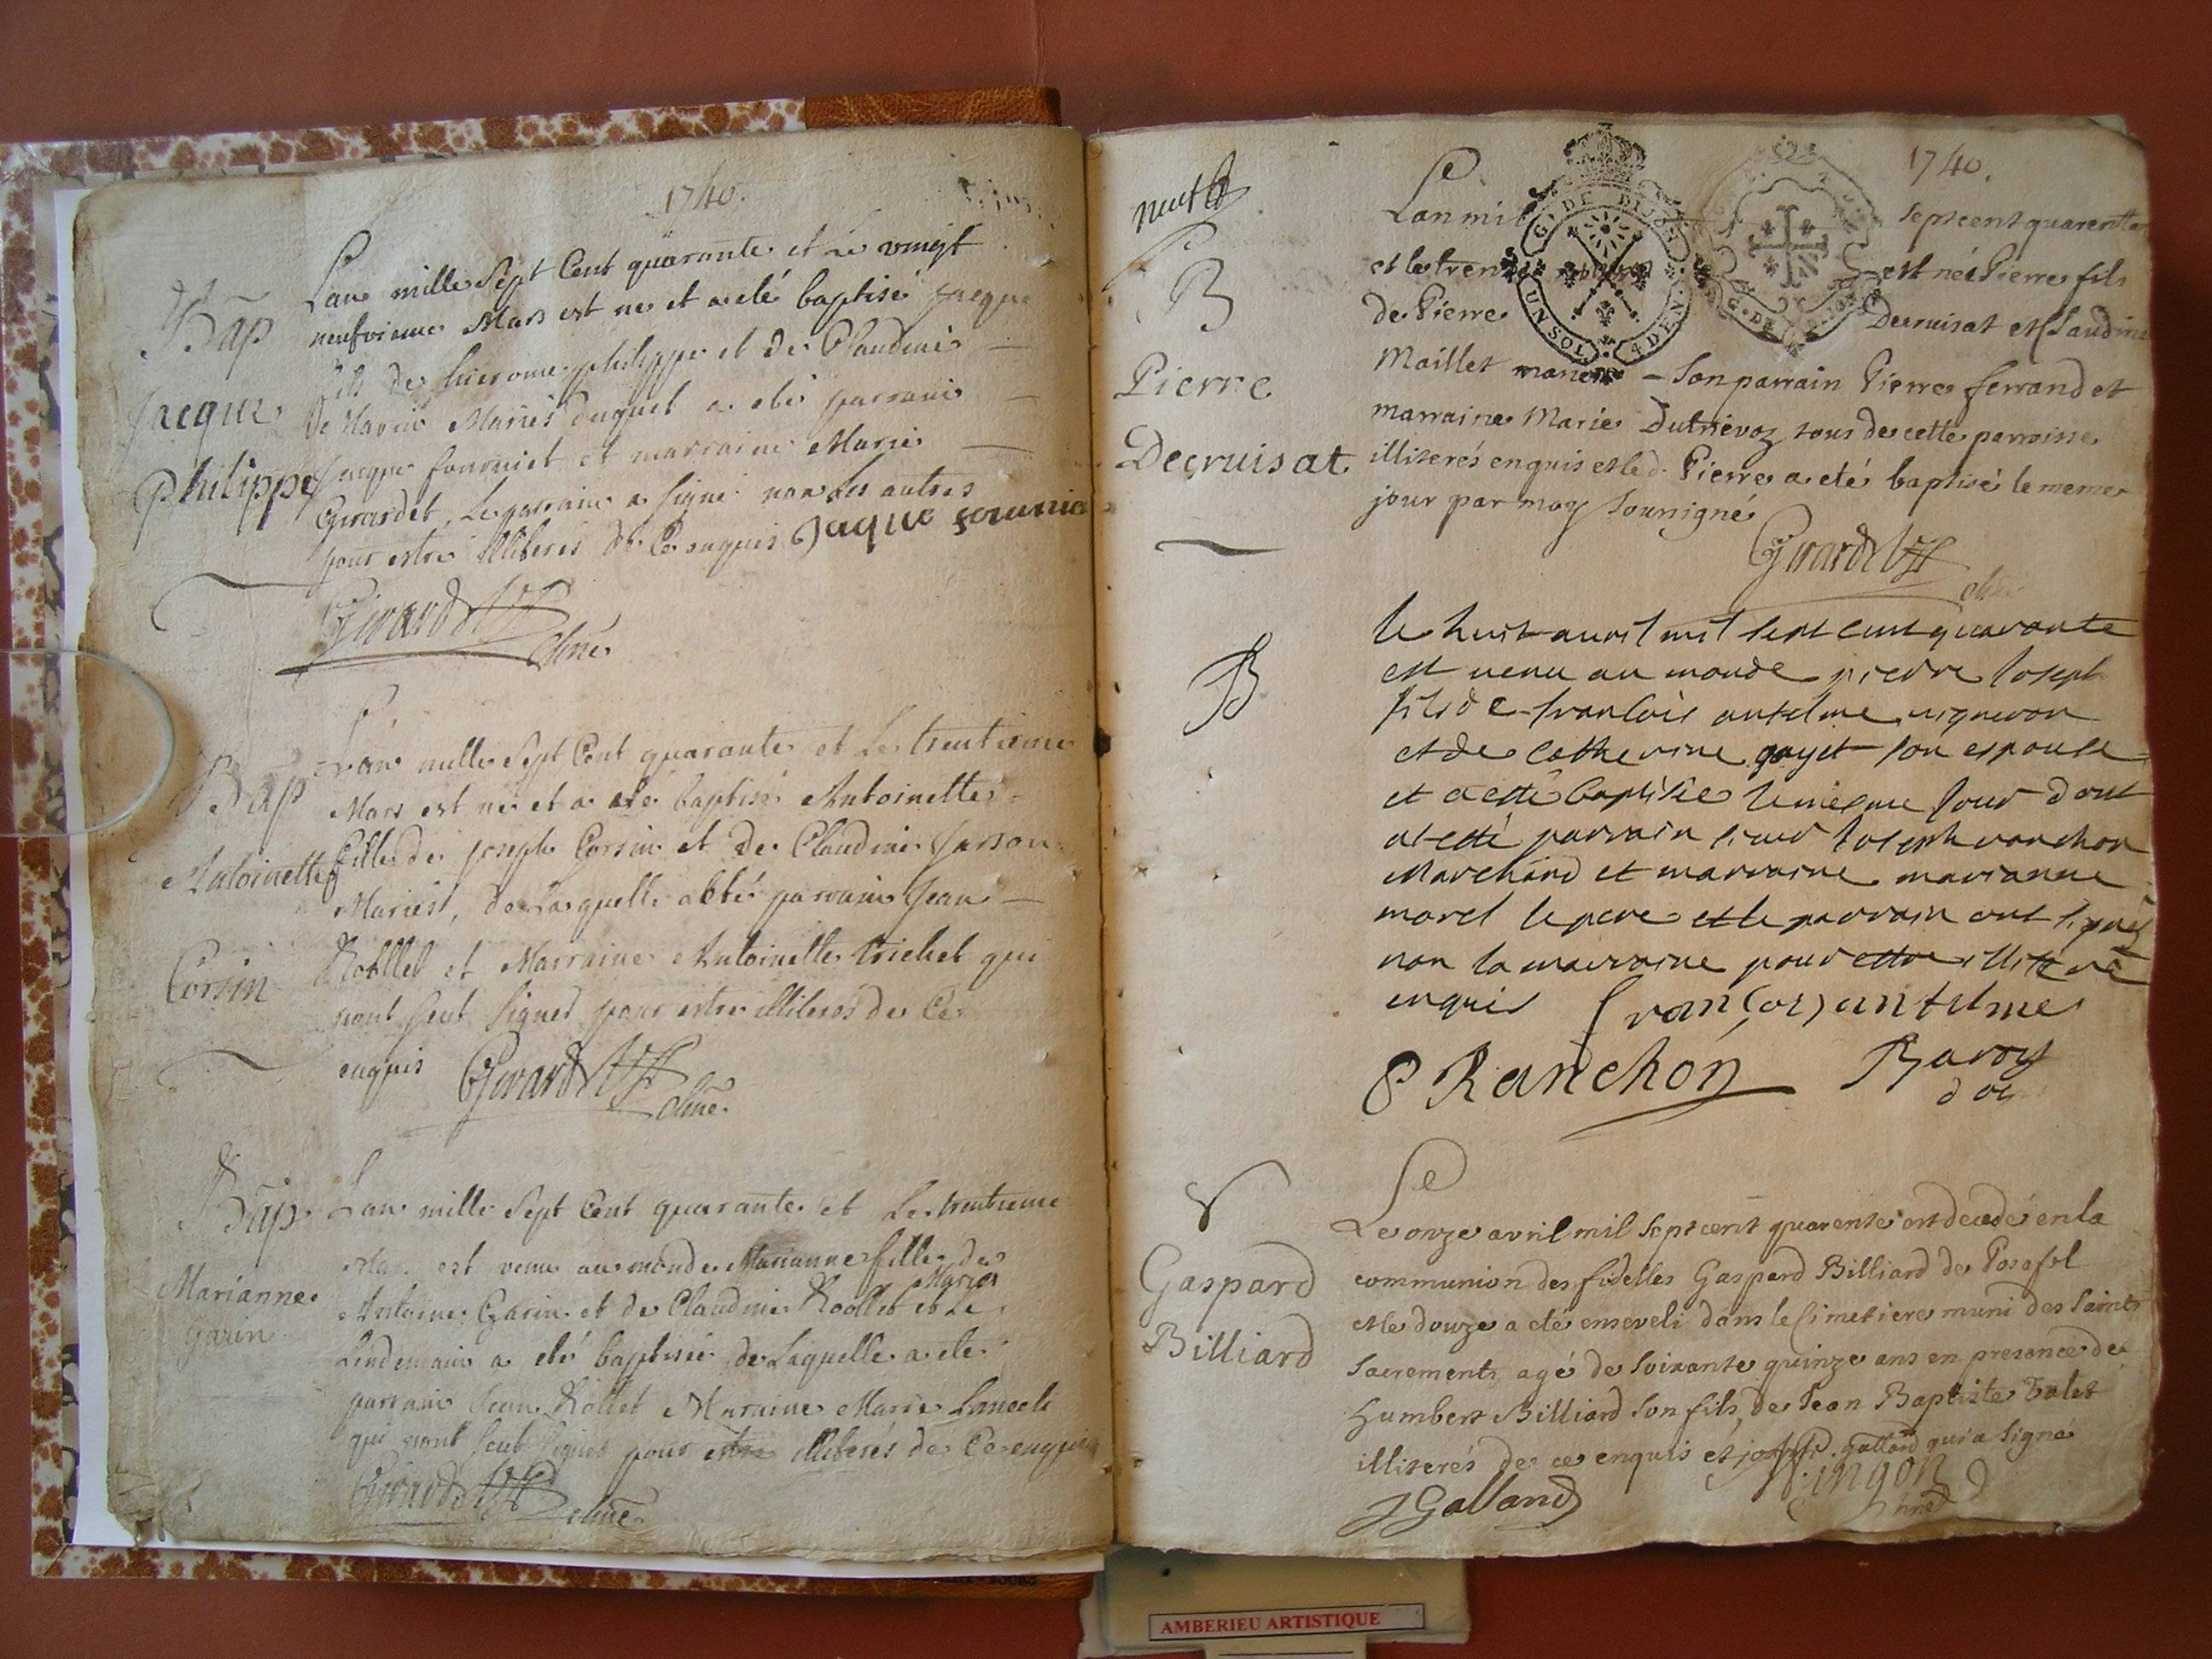 1740.
Bap
Jacque
Philippe
L'an mille Sept Cent quarante et Le vingt
neufvieme Mars est ne et a eté baptisé Jacque
fils de hierome philippe et de Claudine
De Mariés duquel a eté parrain
Jacque fournier et marraine Marie
Girardet, Le parrain a signé non Les autres
pour estre illiterés de Ce enquis Jaque fournie
Girardet
Bap
Antoinette
Corsin
L'an mille Sept Cent quarante et Le trentieme
Mars est né et a eté baptisé Antoinette
fille de joseph Corsin et de Claudine
Mariés, de Laquelle a eté parrain Jean
Rollet et Marraine Antoinette trichet qui
n'ont sceut signer pour estre illiterés de Ce
enquis Girardet
Bap
Marianne
Garin
L'an mille Sept Cent quarante et Le trentieme
est venu au monde Marianne fille de
Antoine Garin et de Claudine Rollet Mariés et Le
Lendemain a eté baptisée de Laquelle a ete
parrain Jean Rollet Maraine Marie
qui n'ont sceut signer pour estre illiterés de Ce enquis
Girardet
1740.
neuf
B
Pierre
Decruisat
L'an mil sept cent quarente
et le trente est né Pierre fils
de Pierre Decruisat et Claudine
Maillet mariés - Son parrain Pierre ferrand et
marraine Marie Dutrievoz tous de cette parroisse
illiterés enquis et led. Pierre a eté baptisé le meme
jour par moy soussigné
Girardet
G. DE DIJON
UN SOL 4 DEN.
B
le huit avril mil sept cent quarante
est venu au monde pierre Joseph
fils de francois antelme vigneron
et de catherine guyet son espouse
et a esté baptisée le mesme jour dont
at esté parrain sieur Joseph ranchon
Marchand et marraine marianne
morel le pere et le parrain ont signés
non la marraine pour estre illiterée
enquis francois antelme
Ranchon
Gaspard
Billiard
Le onze avril mil sept cent quarente est decedé en la
communion des fidelles Gaspard Billiard de Posafol
et le douze a eté enseveli dans le Cimetiere muni des Saints
Sacrements agé de soixante quinze ans en presence de
humbert Billiard son fils, de Jean Baptiste
illiterés de ce enquis et joseph galland qui a signé
J Galland
AMBERIEU ARTISTIQUE